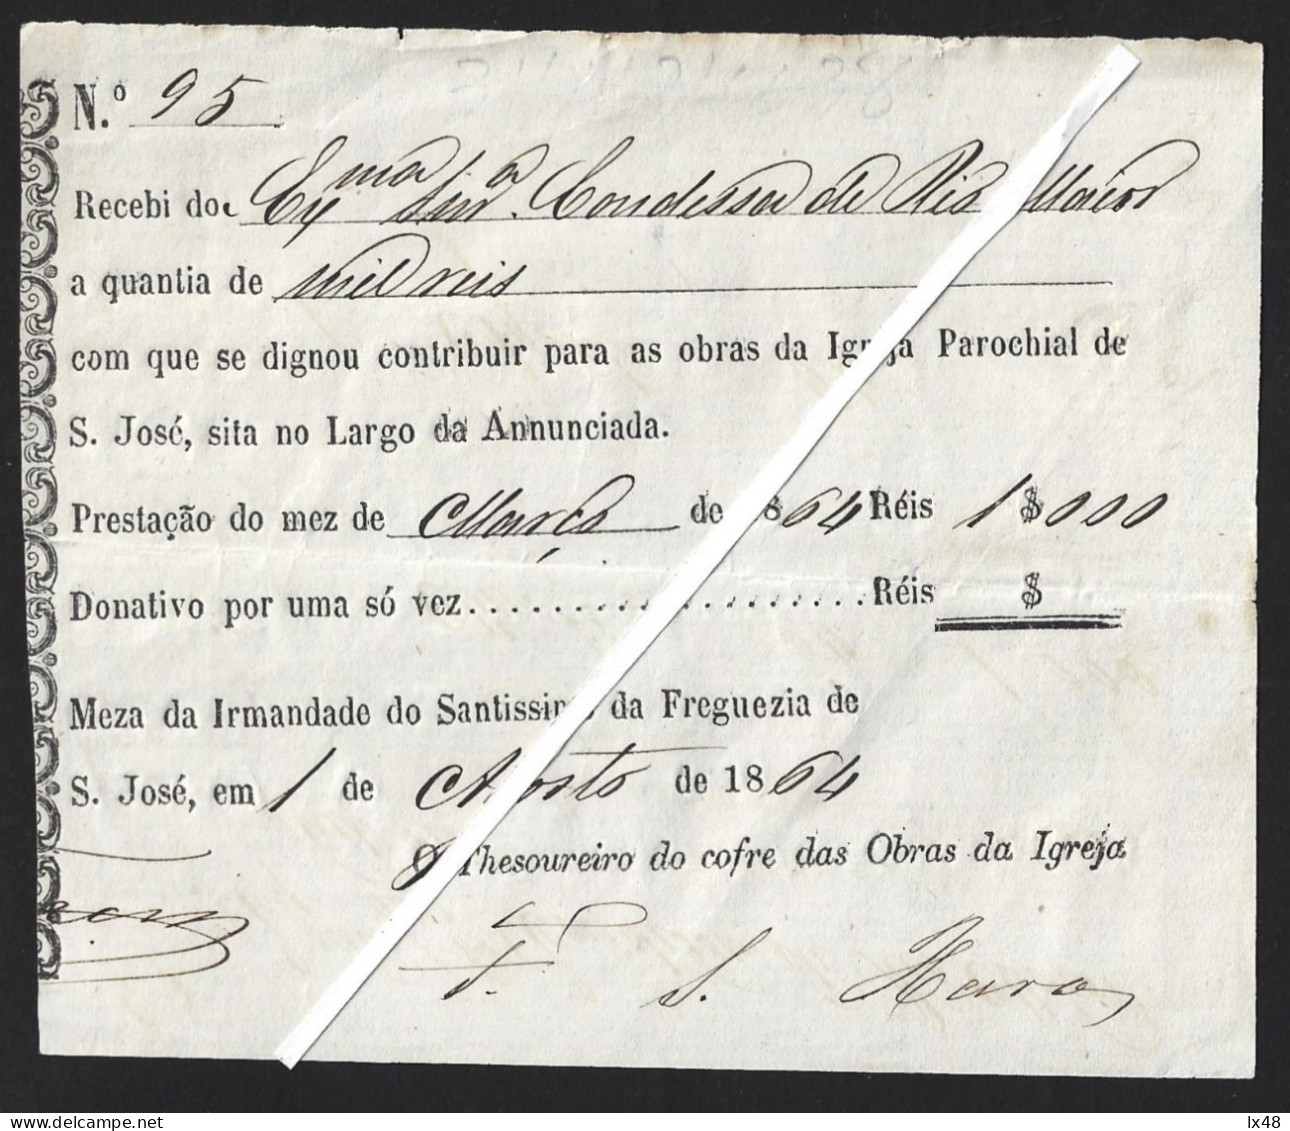 N.º 95
Recebi do Exma Snrª. Condessa de Rio Maior
a quantia de mil reis
com que se dignou contribuir para as obras da Igreja Parochial de
S. José, sita no Largo da Annunciada.
Prestação do mez de Março de 1864 Réis 1$000
Donativo por uma só vez................... Réis $
Meza da Irmandade do Santissimo da Freguezia de
S. José, em 1 de Agosto de 1864
O Thesoureiro do cofre das Obras da Igreja
F. S. Hara
www.delcampe.net
lx48